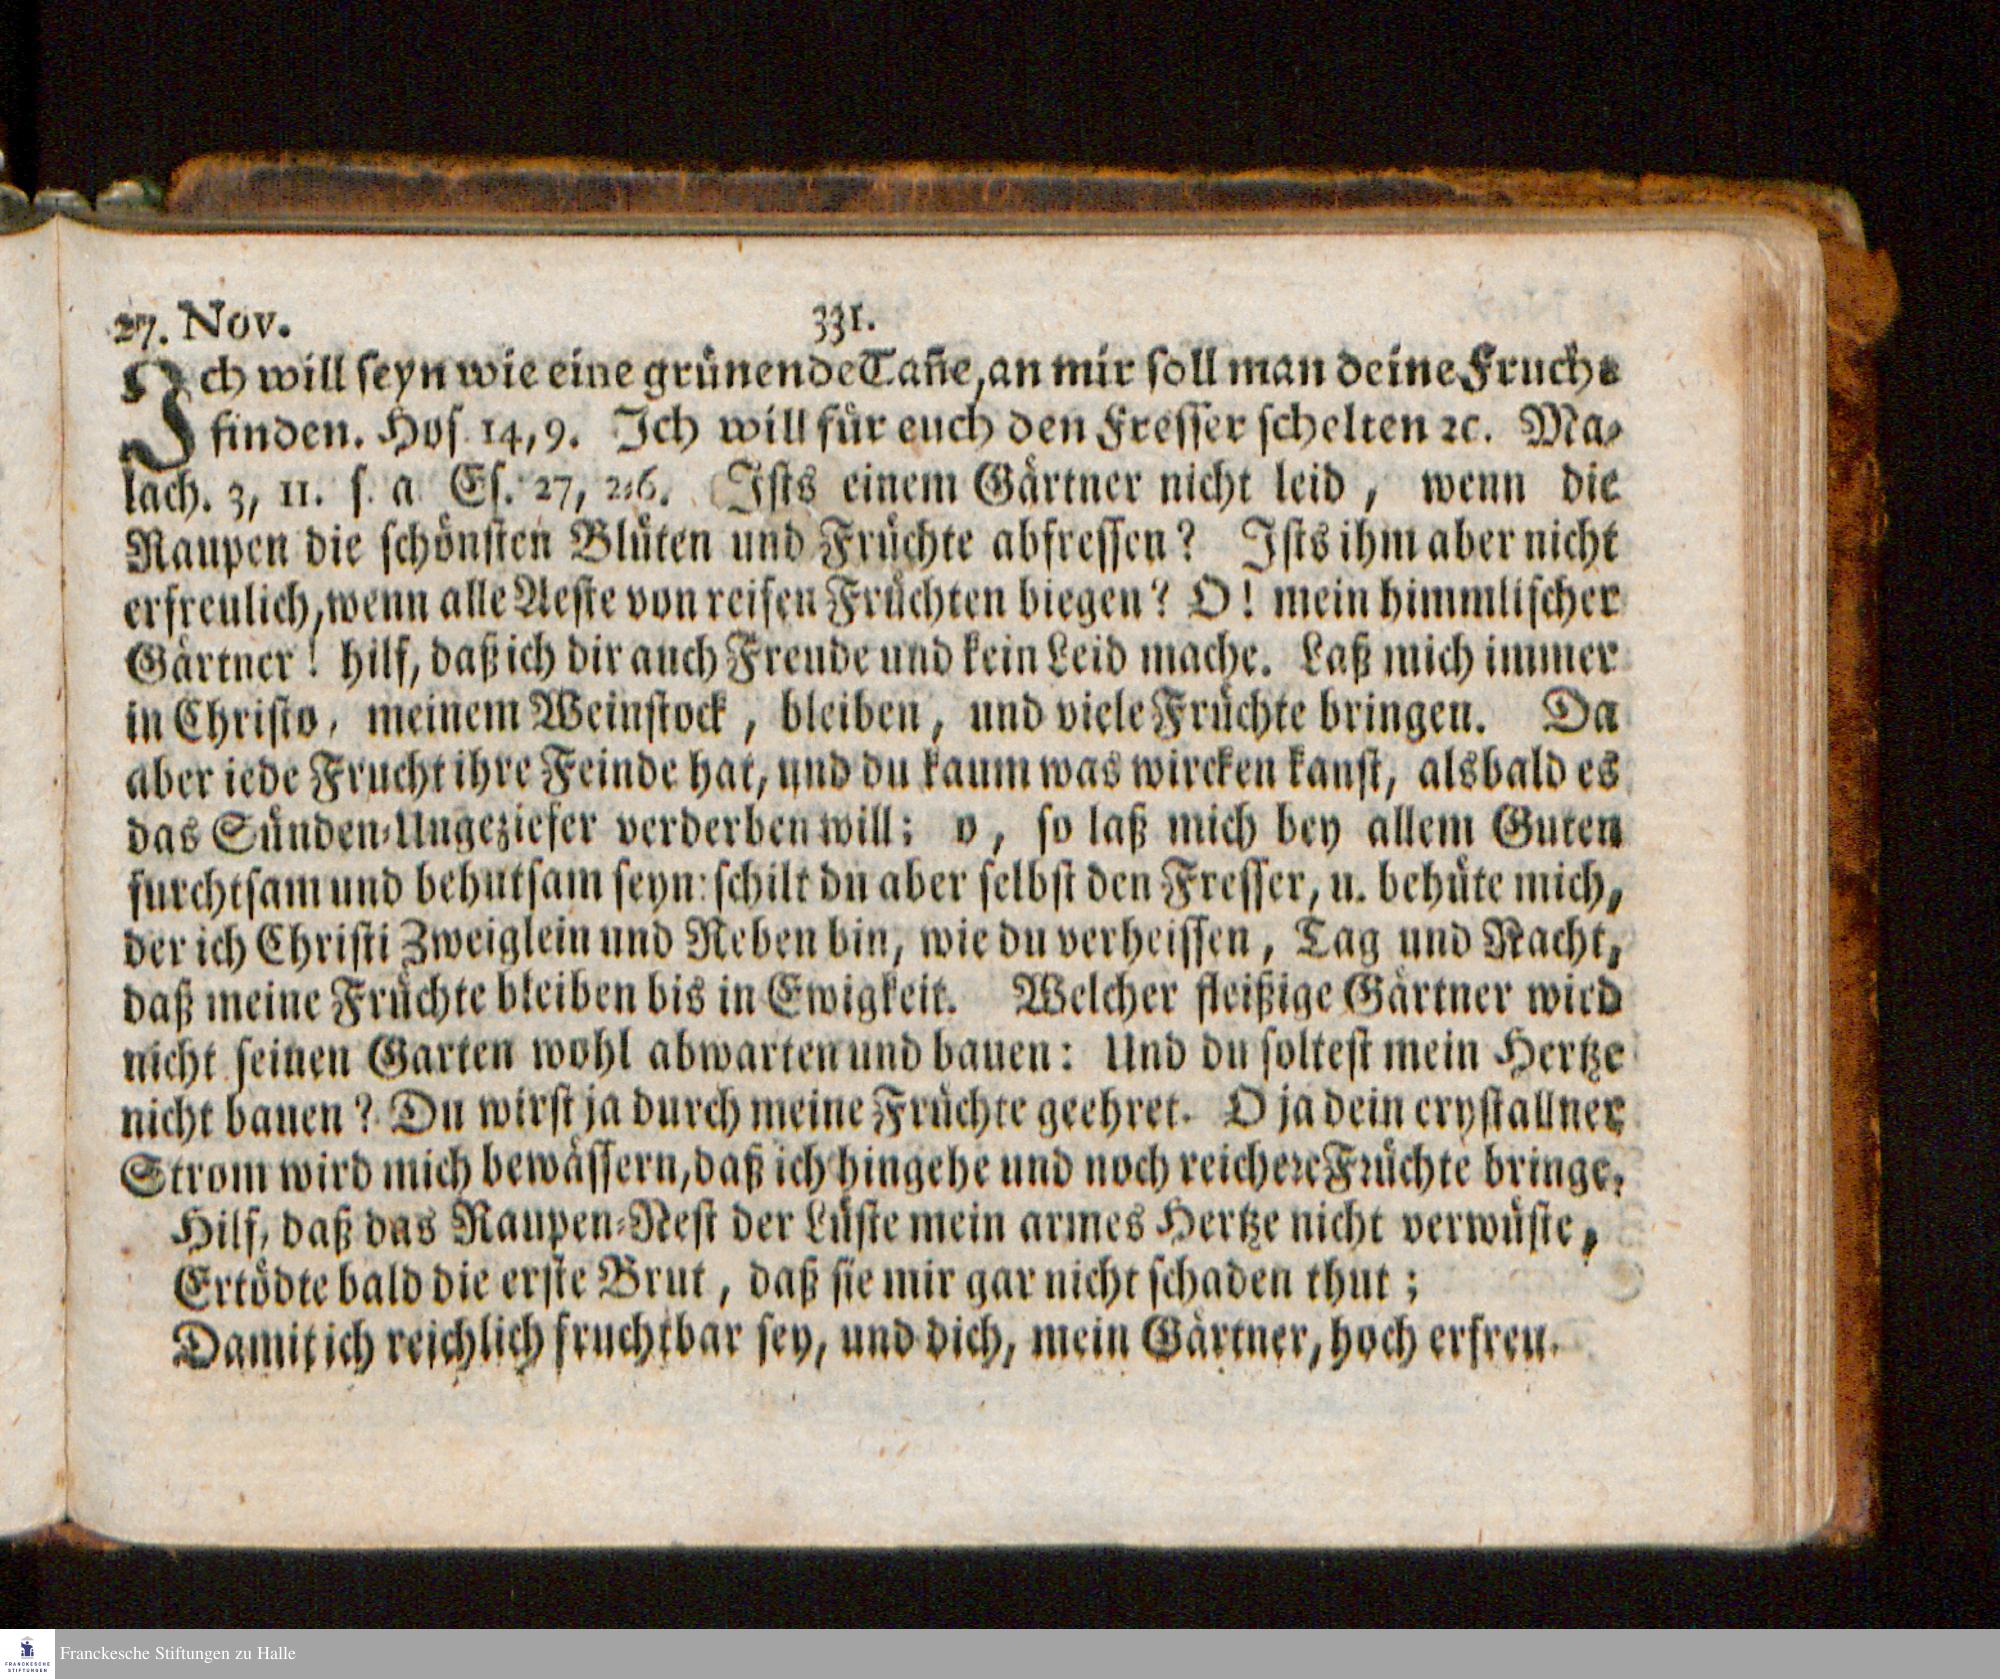 27. Nov. 331.
Ich will seyn wie eine grünende Tañe, an mir soll man deine Frucht
finden. Hos. 14, 9. Ich will für euch den Fresser schelten ꝛc. Ma-
lach. 3, 11. s. a. Es. 27, 2-6. Ists einem Gärtner nicht leid, wenn die
Raupen die schönsten Blüten und Früchte abfressen? Ists ihm aber nicht
erfreulich, wenn alle Aeste von reifen Früchten biegen? O! mein himmlischer
Gärtner! hilf, daß ich dir auch Freude und kein Leid mache. Laß mich immer
in Christo, meinem Weinstock, bleiben, und viele Früchte bringen. Da
aber iede Frucht ihre Feinde hat, und du kaum was wircken kanst, alsbald es
das Sünden-Ungeziefer verderben will: o, so laß mich bey allem Guten
furchtsam und behutsam seyn: schilt du aber selbst den Fresser, u. behüte mich,
der ich Christi Zweiglein und Reben bin, wie du verheissen, Tag und Nacht,
daß meine Früchte bleiben bis in Ewigkeit. Welcher fleißige Gärtner wird
nicht seinen Garten wohl abwarten und bauen: Und du soltest mein Hertze
nicht bauen? Du wirst ja durch meine Früchte geehret. O ja dein crystallner
Strom wird mich bewässern, daß ich hingehe und noch reichere Früchte bringe.
Hilf, daß das Raupen-Nest der Lüste mein armes Hertze nicht verwüste,
Ertödte bald die erste Brut, daß sie mir gar nicht schaden thut;
Damit ich reichlich fruchtbar sey, und dich, mein Gärtner, hoch erfreu.
FRANCKESCHE
STIFTUNGEN
Franckesche Stiftungen zu Halle